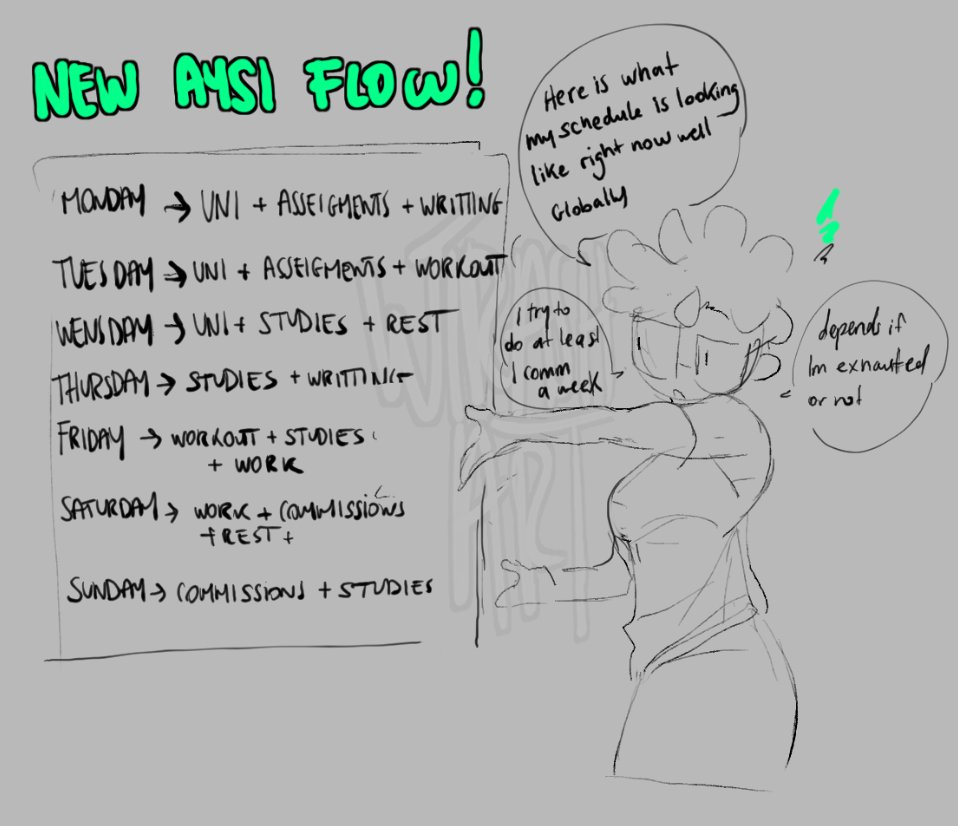 NEW AYSI FLOW!
Here is what
my schedule is looking
like right now well
Globally
MONDAY → UNI + ASSEIGMENTS + WRITTING
TUESDAY → UNI + ASSEIGMENTS + WORKOUT
WENSDAY → UNI + STUDIES + REST
THURSDAY → STUDIES + WRITTING
FRIDAY → WORKOUT + STUDIES
+ WORK
SATURDAY → WORK + COMMISSIONS
+ REST +
SUNDAY → COMMISSIONS + STUDIES
I try to
do at least
1 comm
a week
depends if
Im exhausted
or not
ART